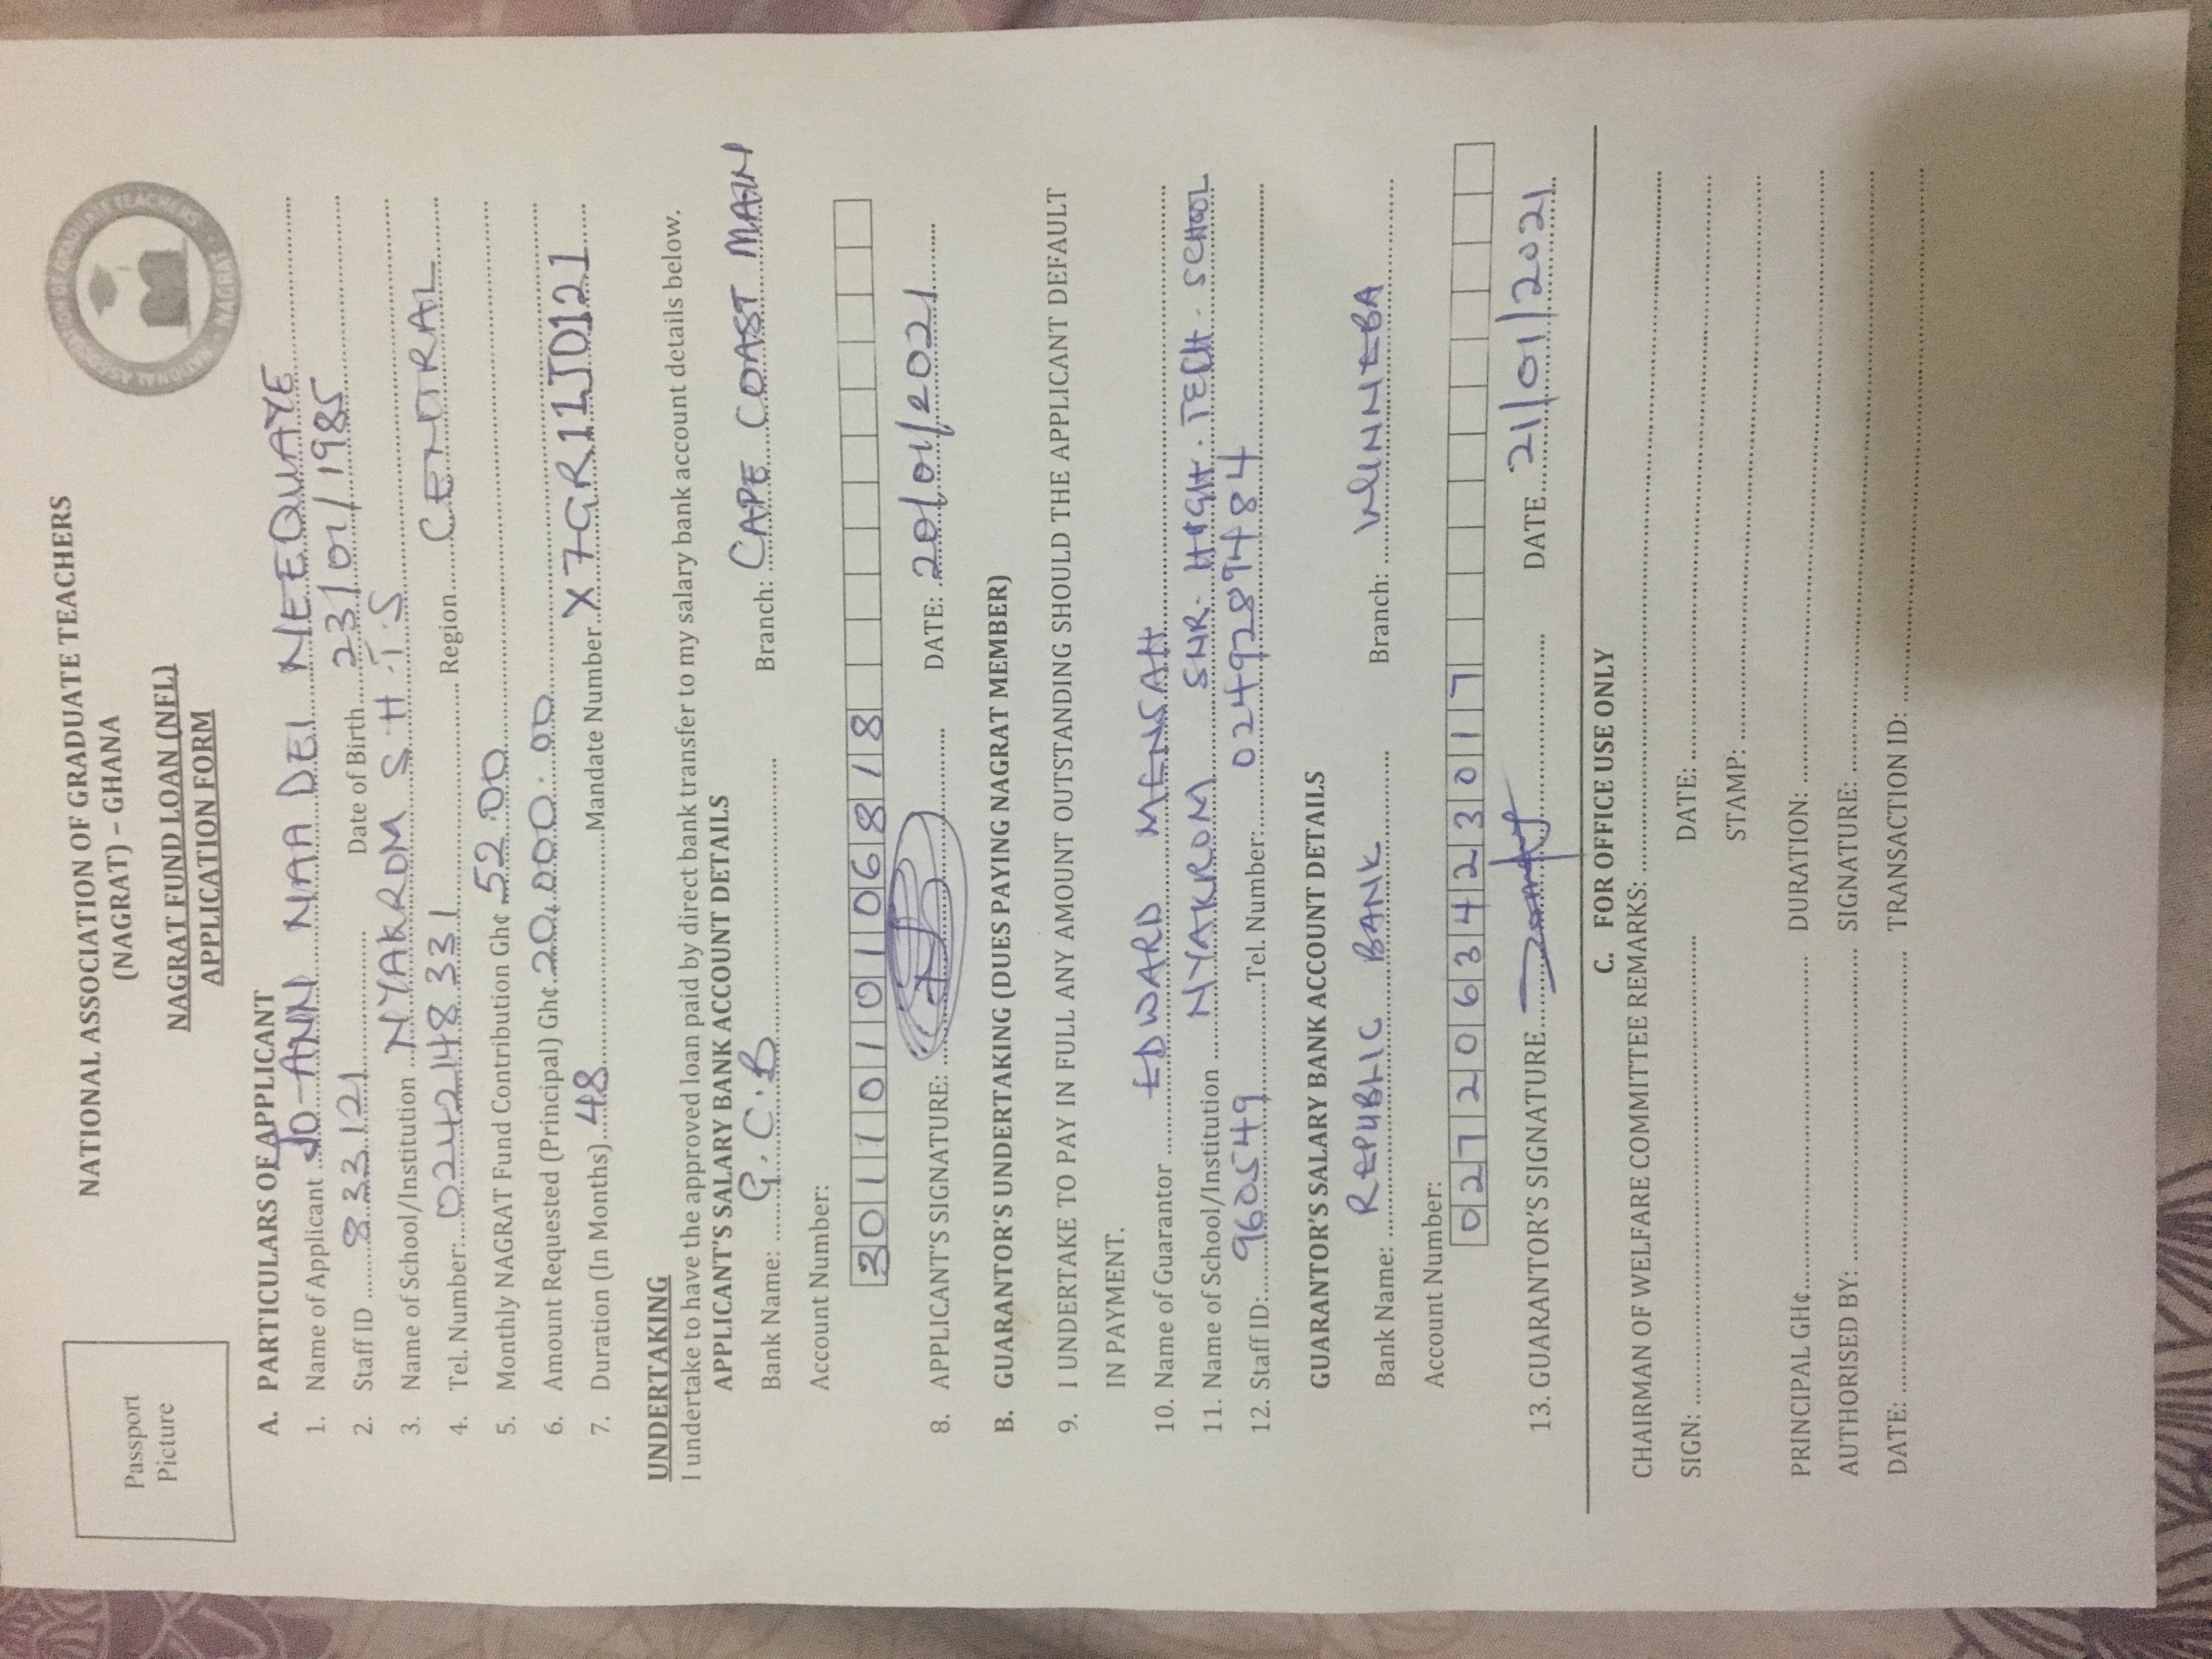 NATIONAL ASSOCIATION OF GRADUATE TEACHERS
(NAGRAT) – GHANA
NAGRAT FUND LOAN (NFL)
APPLICATION FORM
NATIONAL ASSOCIATION OF GRADUATE TEACHERS - NAGRAT
Passport
Picture
A. PARTICULARS OF APPLICANT
1. Name of Applicant JO-ANN NAA DEI NEEQUAYE
2. Staff ID 833121 Date of Birth 23/01/1985
3. Name of School/Institution NYAKROM S.H.T.S
4. Tel. Number: 0242148331 Region CENTRAL
5. Monthly NAGRAT Fund Contribution Gh¢ 52.00
6. Amount Requested (Principal) Gh¢ 20,000.00
7. Duration (In Months) 48 Mandate Number X7GR11JD121
UNDERTAKING
I undertake to have the approved loan paid by direct bank transfer to my salary bank account details below.
APPLICANT'S SALARY BANK ACCOUNT DETAILS
Bank Name: G.C.B Branch: CAPE COAST MAIN
Account Number:
3011010106818
8. APPLICANT'S SIGNATURE: DATE: 20/01/2021
B. GUARANTOR'S UNDERTAKING (DUES PAYING NAGRAT MEMBER)
9. I UNDERTAKE TO PAY IN FULL ANY AMOUNT OUTSTANDING SHOULD THE APPLICANT DEFAULT
IN PAYMENT.
10. Name of Guarantor EDWARD MENSAH
11. Name of School/Institution NYAKROM SNR. HIGH. TECH. SCHOOL
12. Staff ID: 960549 Tel. Number: 0249289484
GUARANTOR'S SALARY BANK ACCOUNT DETAILS
Bank Name: REPUBLIC BANK Branch: WINNEBA
Account Number:
0272063423017
13. GUARANTOR'S SIGNATURE DATE 21/01/2021
C. FOR OFFICE USE ONLY
CHAIRMAN OF WELFARE COMMITTEE REMARKS:
SIGN: DATE:
STAMP:
PRINCIPAL GH¢ DURATION:
AUTHORISED BY: SIGNATURE:
DATE: TRANSACTION ID: